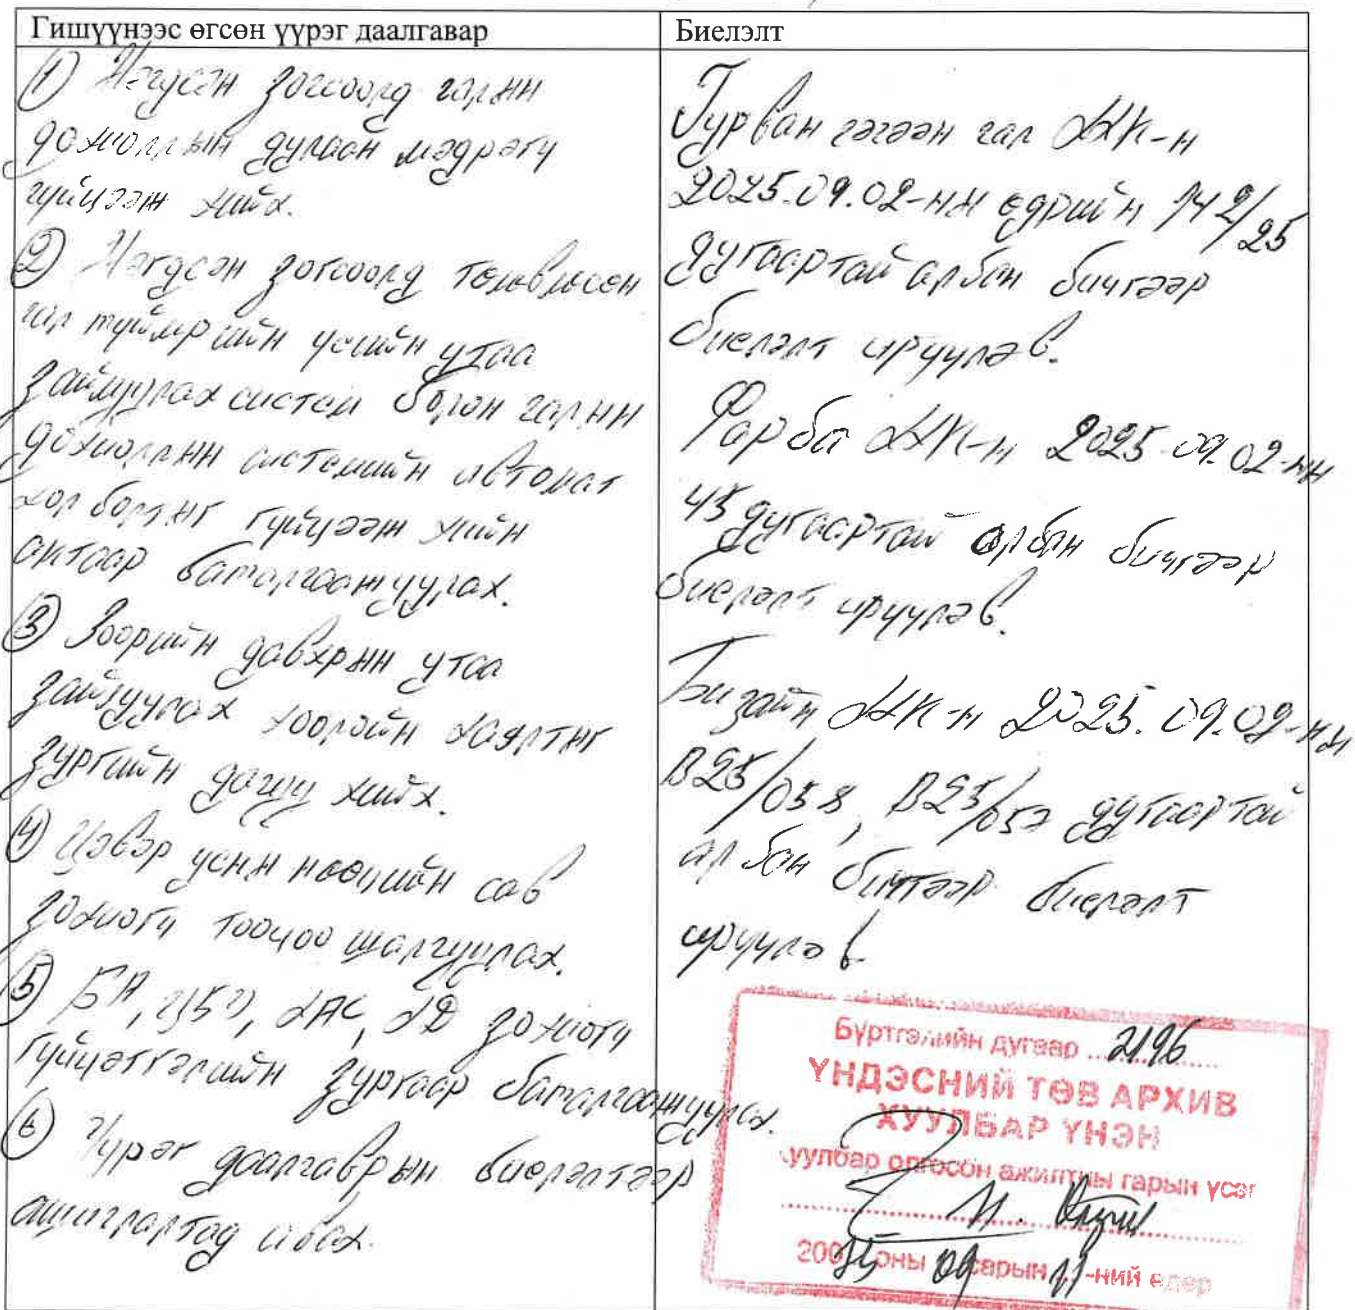 Гишүүнээс өгсөн үүрэг даалгавар
① Нэгдсэн зогсоолд галын
дохиоллын дулаан мэдрэгч
гүйцээж хийх.
② Нэгдсэн зогсоолд төлөвлөсөн
гал түймрийн үеийн утаа
зайлуулах систем болон галын
дохиоллын системийн автомат
холболтыг гүйцээж хийн
актаар баталгаажуулах.
③ Зоорийн давхрын утаа
зайлуулах хоолойн хаялтыг
зургийн дагуу хийх.
④ Цэвэр усны нөөцийн сав
зохиогч тооцоо шалгуулах.
⑤ БА, ХАС, ХД зохиогч
гүйцэтгэлийн зургаар баталгаажуулах.
⑥ Үүрэг даалгаврын биелэлтээр
ашиглалтад авах.
Биелэлт
Гурван гэгээн гал ХХК-н
2025.09.02-ны өдрийн 142/25
дугаартай албан бичгээр
биелэлт ирүүлэв.
Фарба ХХК-н 2025.09.02-ны
45 дугаартай албан бичгээр
биелэлт ирүүлэв.
Бизайн ХХК-н 2025.09.02-ны
B25/058, B25/057 дугаартай
албан бичгээр биелэлт
ирүүлэв.
Бүртгэлийн дугаар 2196
ҮНДЭСНИЙ ТӨВ АРХИВ
ХУУЛБАР ҮНЭН
хуулбар олгосон ажилтны гарын үсэг
2025 оны 09 сарын 11-ний өдөр